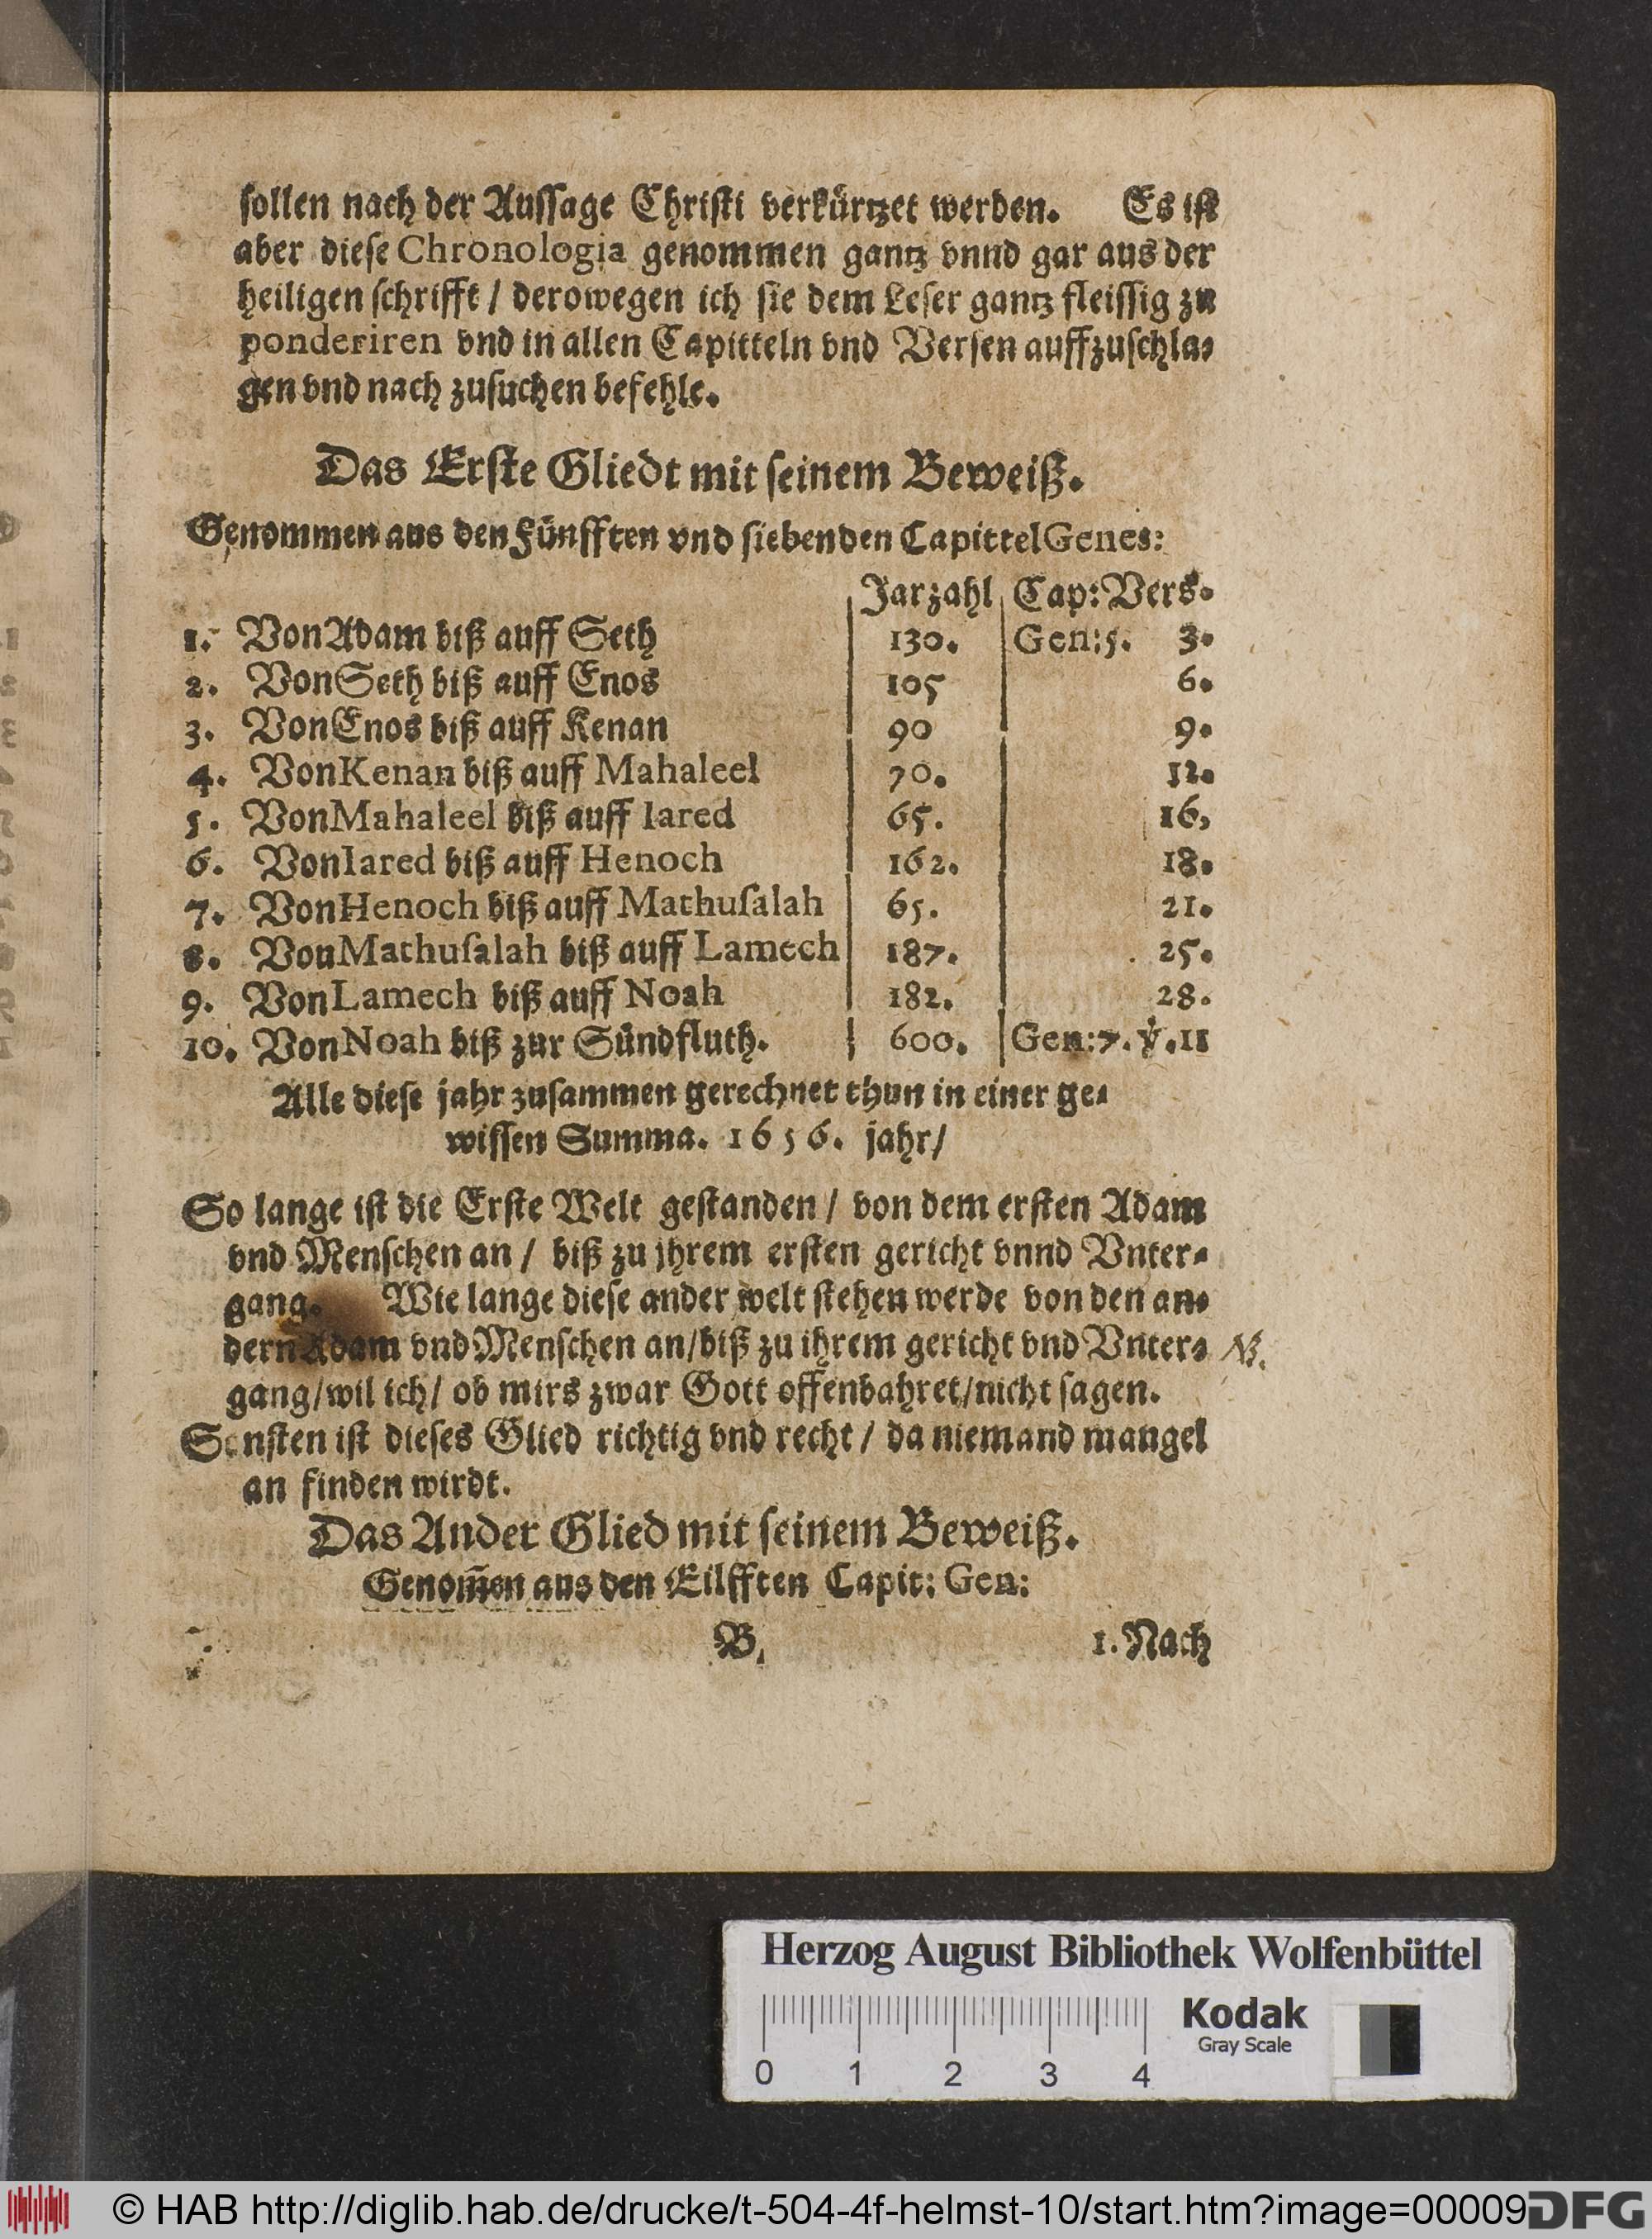 sollen nach der Aussage Christi verkürtzet werden. Es ist
aber diese Chronologia genommen gantz vnnd gar aus der
heiligen schrifft / derowegen ich sie dem Leser gantz fleissig zu
ponderiren vnd in allen Capitteln vnd Versen auffzuschla-
gen vnd nach zusuchen befehle.
Das Erste Gliedt mit seinem Beweiß.
Genommen aus den Fünfften vnd siebenden Capittel Genes:
Jarzahl Cap: Vers.
1. Von Adam biß auff Seth 130. Gen: 5. 3.
2. Von Seth biß auff Enos 105 6.
3. Von Enos biß auff Kenan 90 9.
4. Von Kenan biß auff Mahaleel 70. 12.
5. Von Mahaleel biß auff Iared 65. 16,
6. Von Iared biß auff Henoch 162. 18.
7. Von Henoch biß auff Mathusalah 65. 21.
8. Von Mathusalah biß auff Lamech 187. 25.
9. Von Lamech biß auff Noah 182. 28.
10. Von Noah biß zur Sündfluth. 600. Gen: 7. V. 11
Alle diese jahr zusammen gerechnet thun in einer ge-
wissen Summa. 1656. jahr/
So lange ist die Erste Welt gestanden / von dem ersten Adam
vnd Menschen an / biß zu jhrem ersten gericht vnnd Vnter-
gang. Wie lange diese ander welt stehen werde von den an-
dern Adam vnd Menschen an/biß zu ihrem gericht vnd Vnter- NB.
gang/wil ich/ ob mirs zwar Gott offenbahret/nicht sagen.
Sonsten ist dieses Glied richtig vnd recht / da niemand mangel
an finden wirdt.
Das Ander Glied mit seinem Beweiß.
Genom̃en aus den Eilfften Capit: Gen:
B. 1. Nach
Herzog August Bibliothek Wolfenbüttel
Kodak
Gray Scale
0 1 2 3 4
© HAB http://diglib.hab.de/drucke/t-504-4f-helmst-10/start.htm?image=00009
DFG